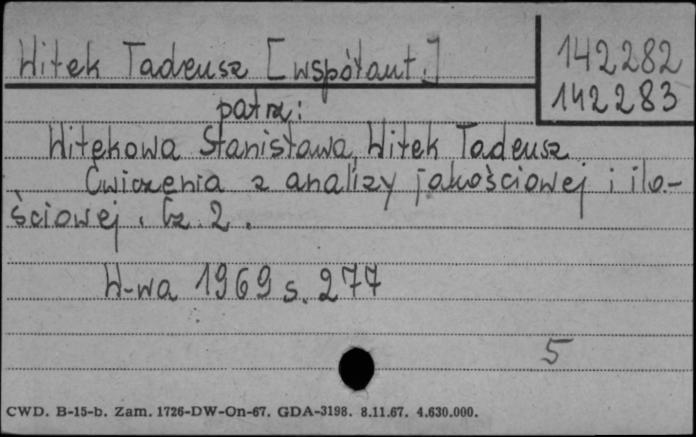 Witek Tadeusz [współaut.]
142282
142283
patrz:
Witekowa Stanisława, Witek Tadeusz
Ćwiczenia z analizy jakościowej i ilo-
ściowej. Cz. 2.
W-wa 1969 s. 277
5
CWD. B-15-b. Zam. 1726-DW-On-67. GDA-3198. 8.11.67. 4.630.000.